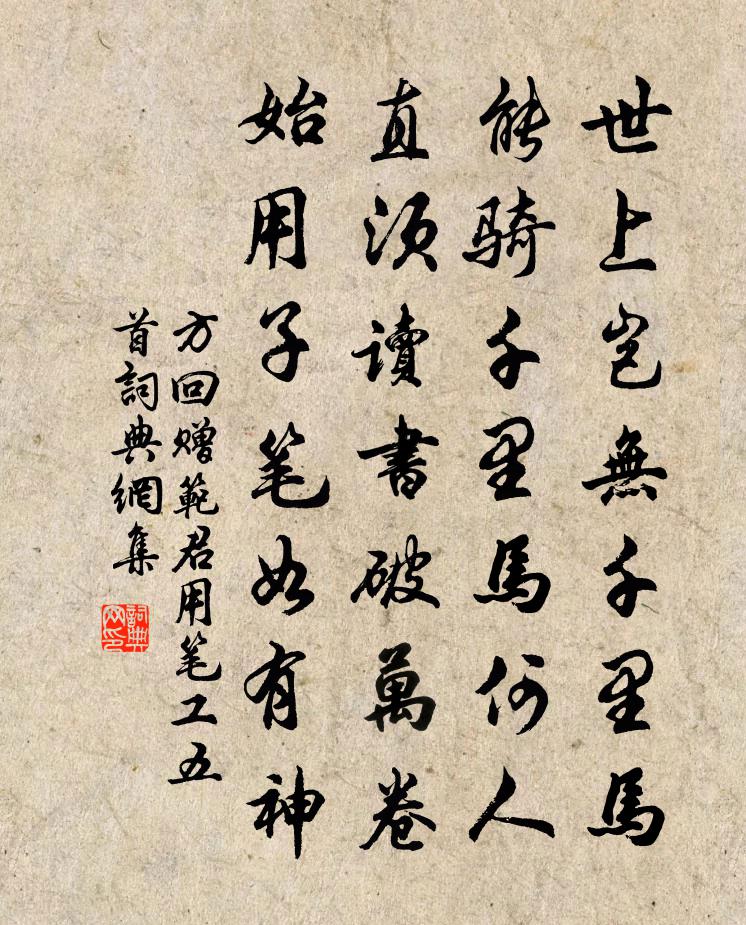 世上豈無千里馬
能騎千里馬何人
直須讀書破萬卷
始用子笔如有神
方回赠範君用笔工五
首詞典網集
詞典網印